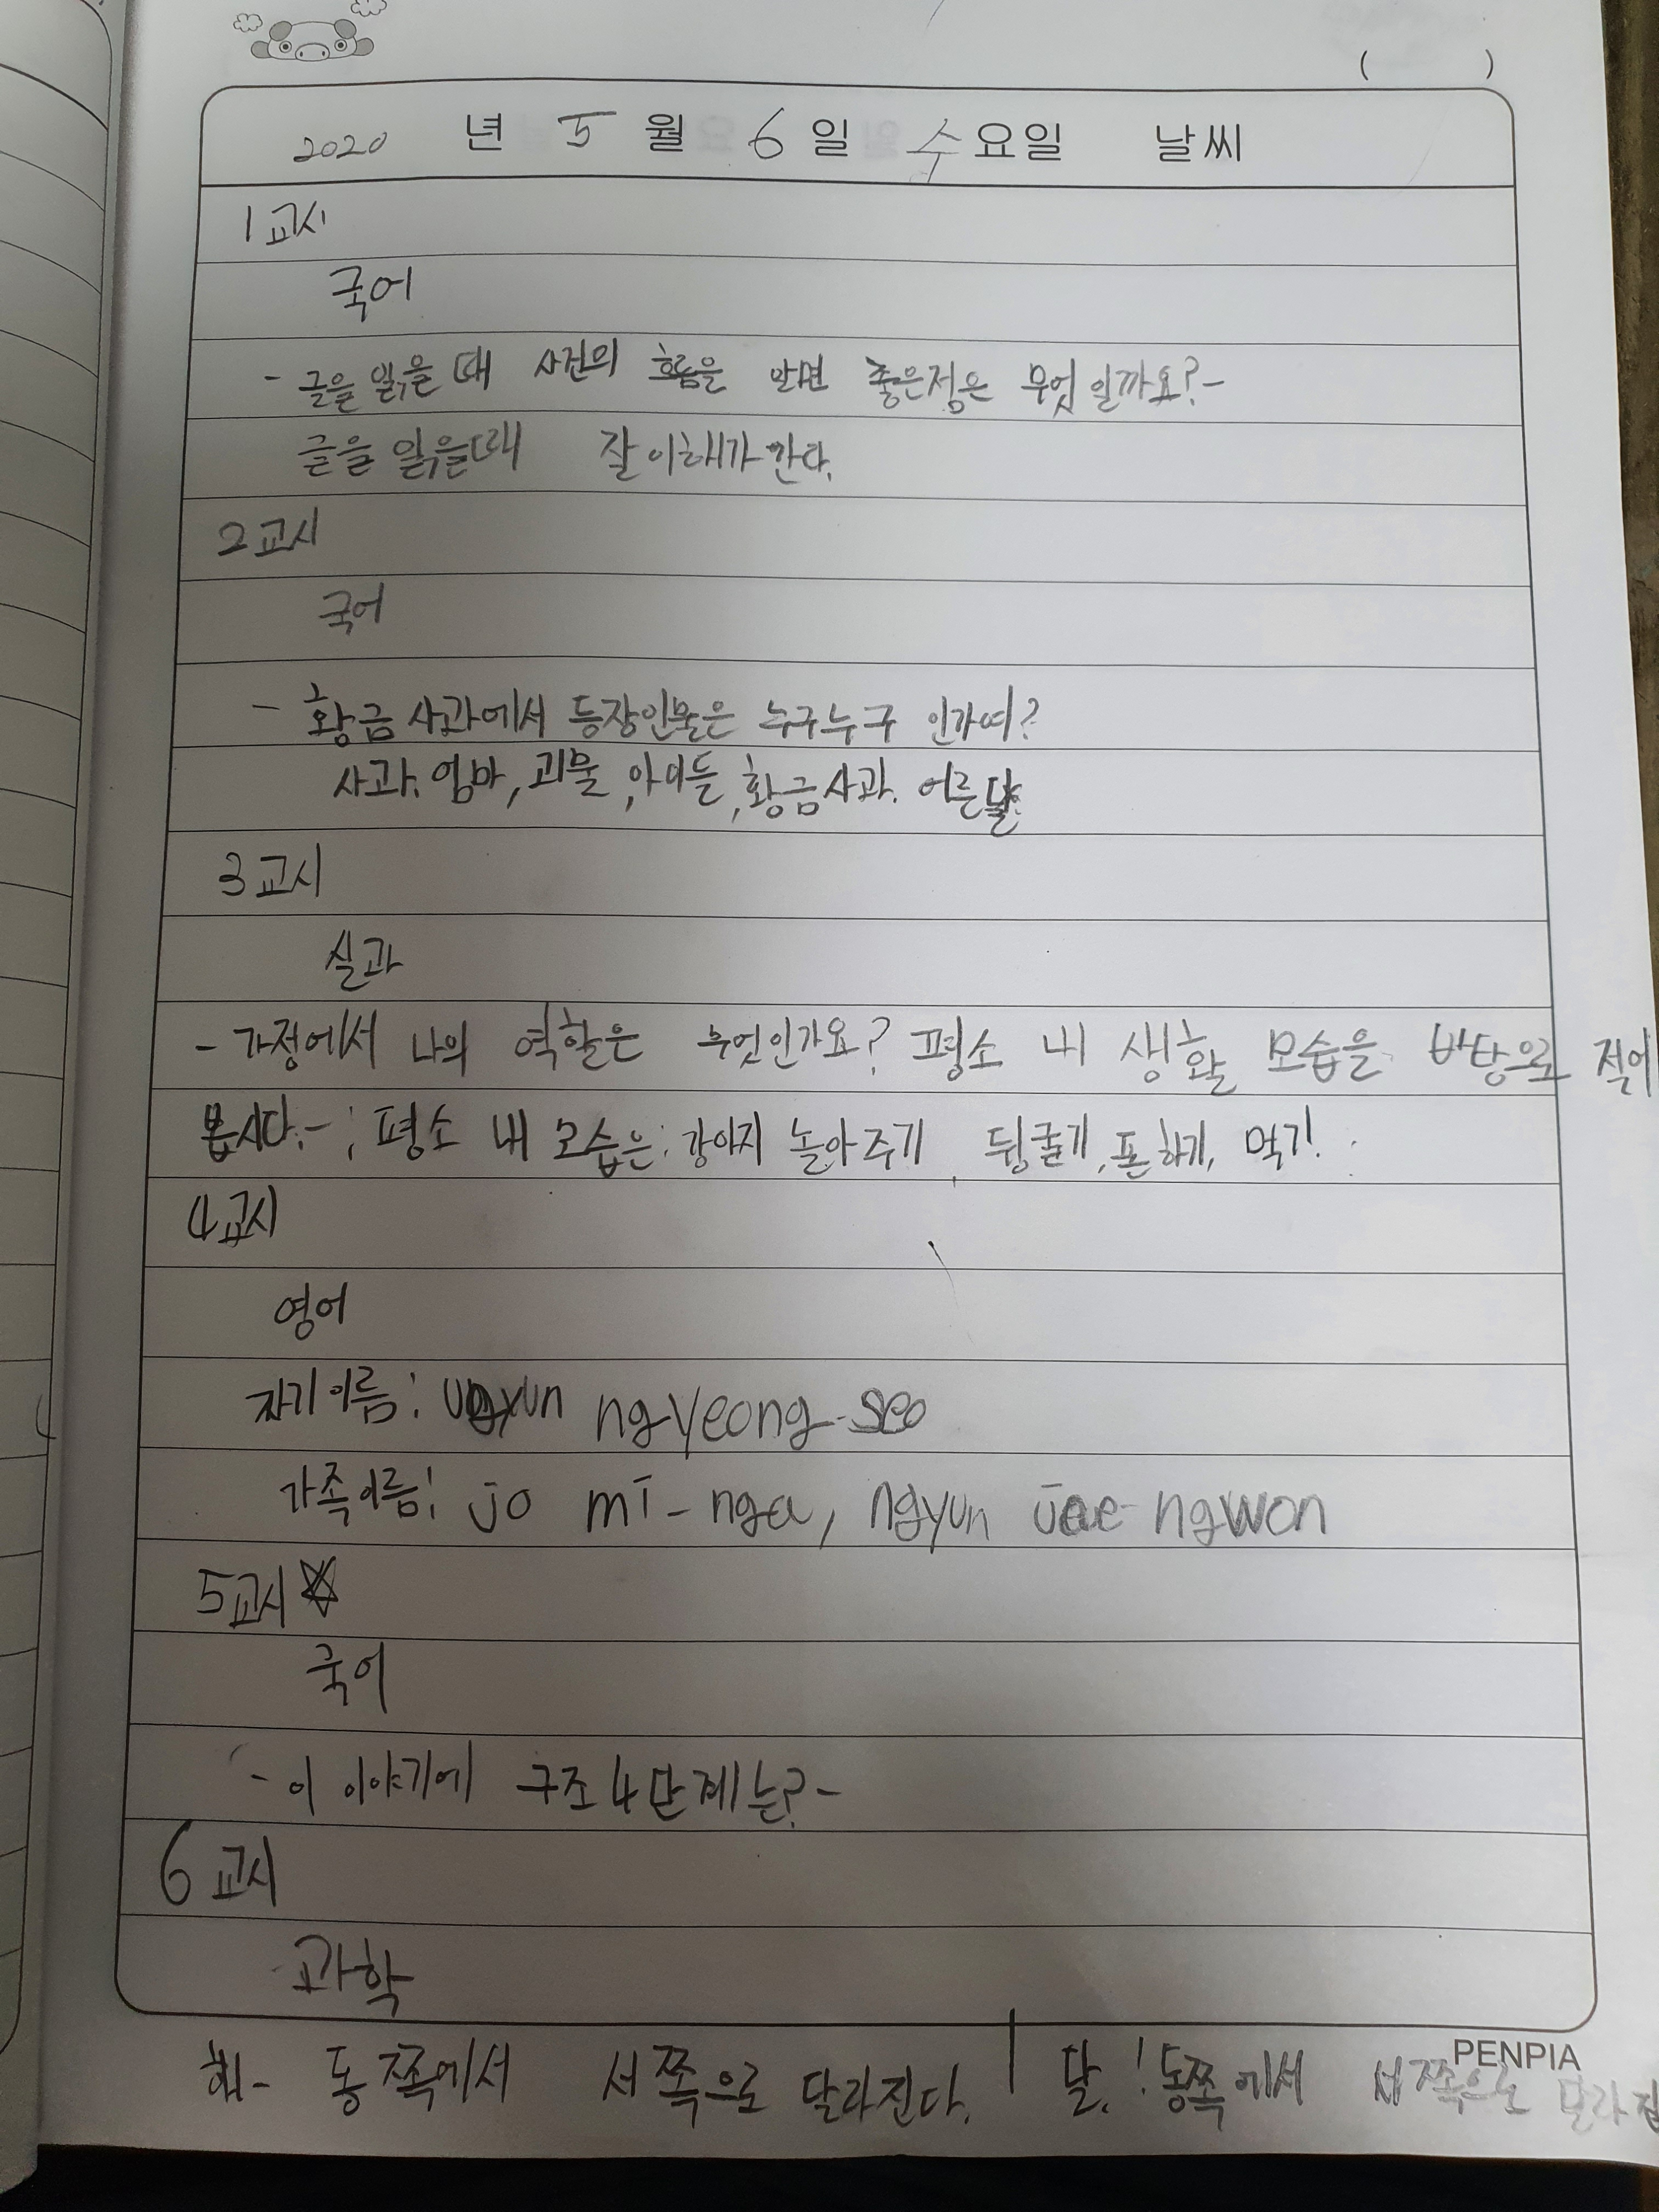 ( )
2020 년 5 월 6 일 수요일 날씨
1교시
국어
- 글을 읽을 때 사건의 흐름을 알면 좋은점은 무엇일까요? -
글을 읽을때 잘 이해가 간다.
2교시
국어
- 황금사과에서 등장인물은 누구누구 인가여?
사과, 엄마, 괴물, 아이들, 황금사과, 어른들
3교시
실과
- 가정에서 나의 역할은 무엇인가요? 평소 내 생활 모습을 바탕으로 적어
봅시다. - : 평소 내 모습은: 강아지 놀아주기, 뒹굴기, 폰하기, 먹기!
4교시
영어
자기이름: ngyeong-seo
가족이름: jo mi-nga, ngyun jae-ngwon
5교시 ☆
국어
- 이 이야기에 구조 4단계는? -
6교시
과학
해- 동쪽에서 서쪽으로 달라진다. | 달! 동쪽에서 서쪽으로 달라진
PENPIA